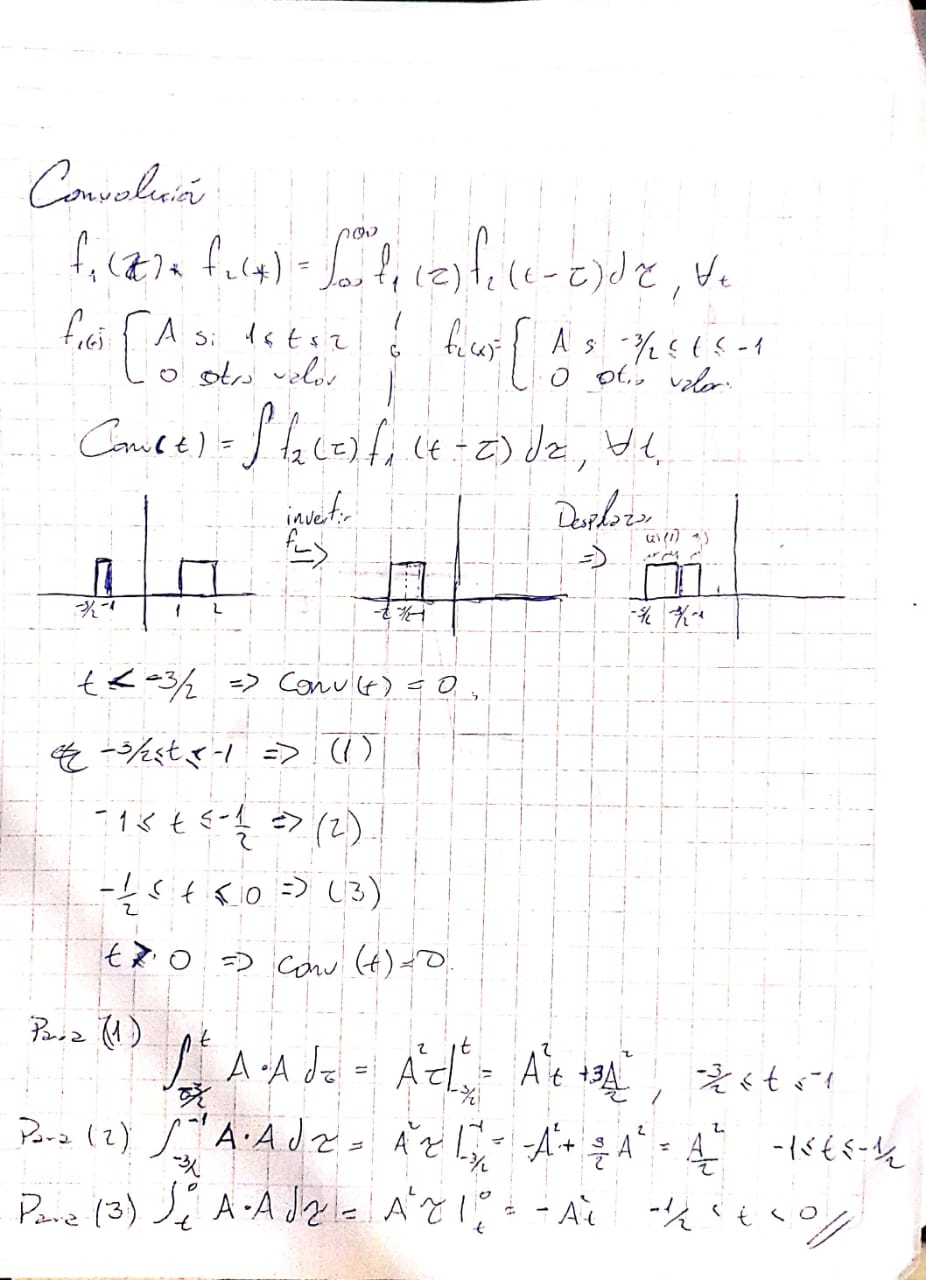 Convolución
f₁(t) * f₂(t) = ∫_{-∞}^{∞} f₁(τ) f₂(t-τ) dτ, ∀t
f₁(t) { A si 1≤t≤2 ; 0 otro valor | f₂(t)= { A si -3/2≤t≤-1 ; 0 otro valor.
Conv(t) = ∫ f₂(τ) f₁(t-τ) dτ, ∀t.
invertir f₁ => Desplazar =>
-3/2 -1 1 2 -2 -3/2 -1 -3/2 -1
t < -3/2 => Conv(t) = 0,
-3/2≤t≤-1 => (1)
-1≤t≤-1/2 => (2)
-1/2≤t≤0 => (3)
t>0 => conv(t)=0
Para (1) ∫_{-3/2}^{t} A·A dτ = A²τ|_{-3/2}^{t} = A²t + 3A²/2, -3/2≤t≤-1
Para (2) ∫_{-3/2}^{-1} A·A dτ = A²τ|_{-3/2}^{-1} = -A² + 3/2 A² = A²/2 -1≤t≤-1/2
Para (3) ∫_{t}^{0} A·A dτ = A²τ|_{t}^{0} = -A²t -1/2<t<0 //